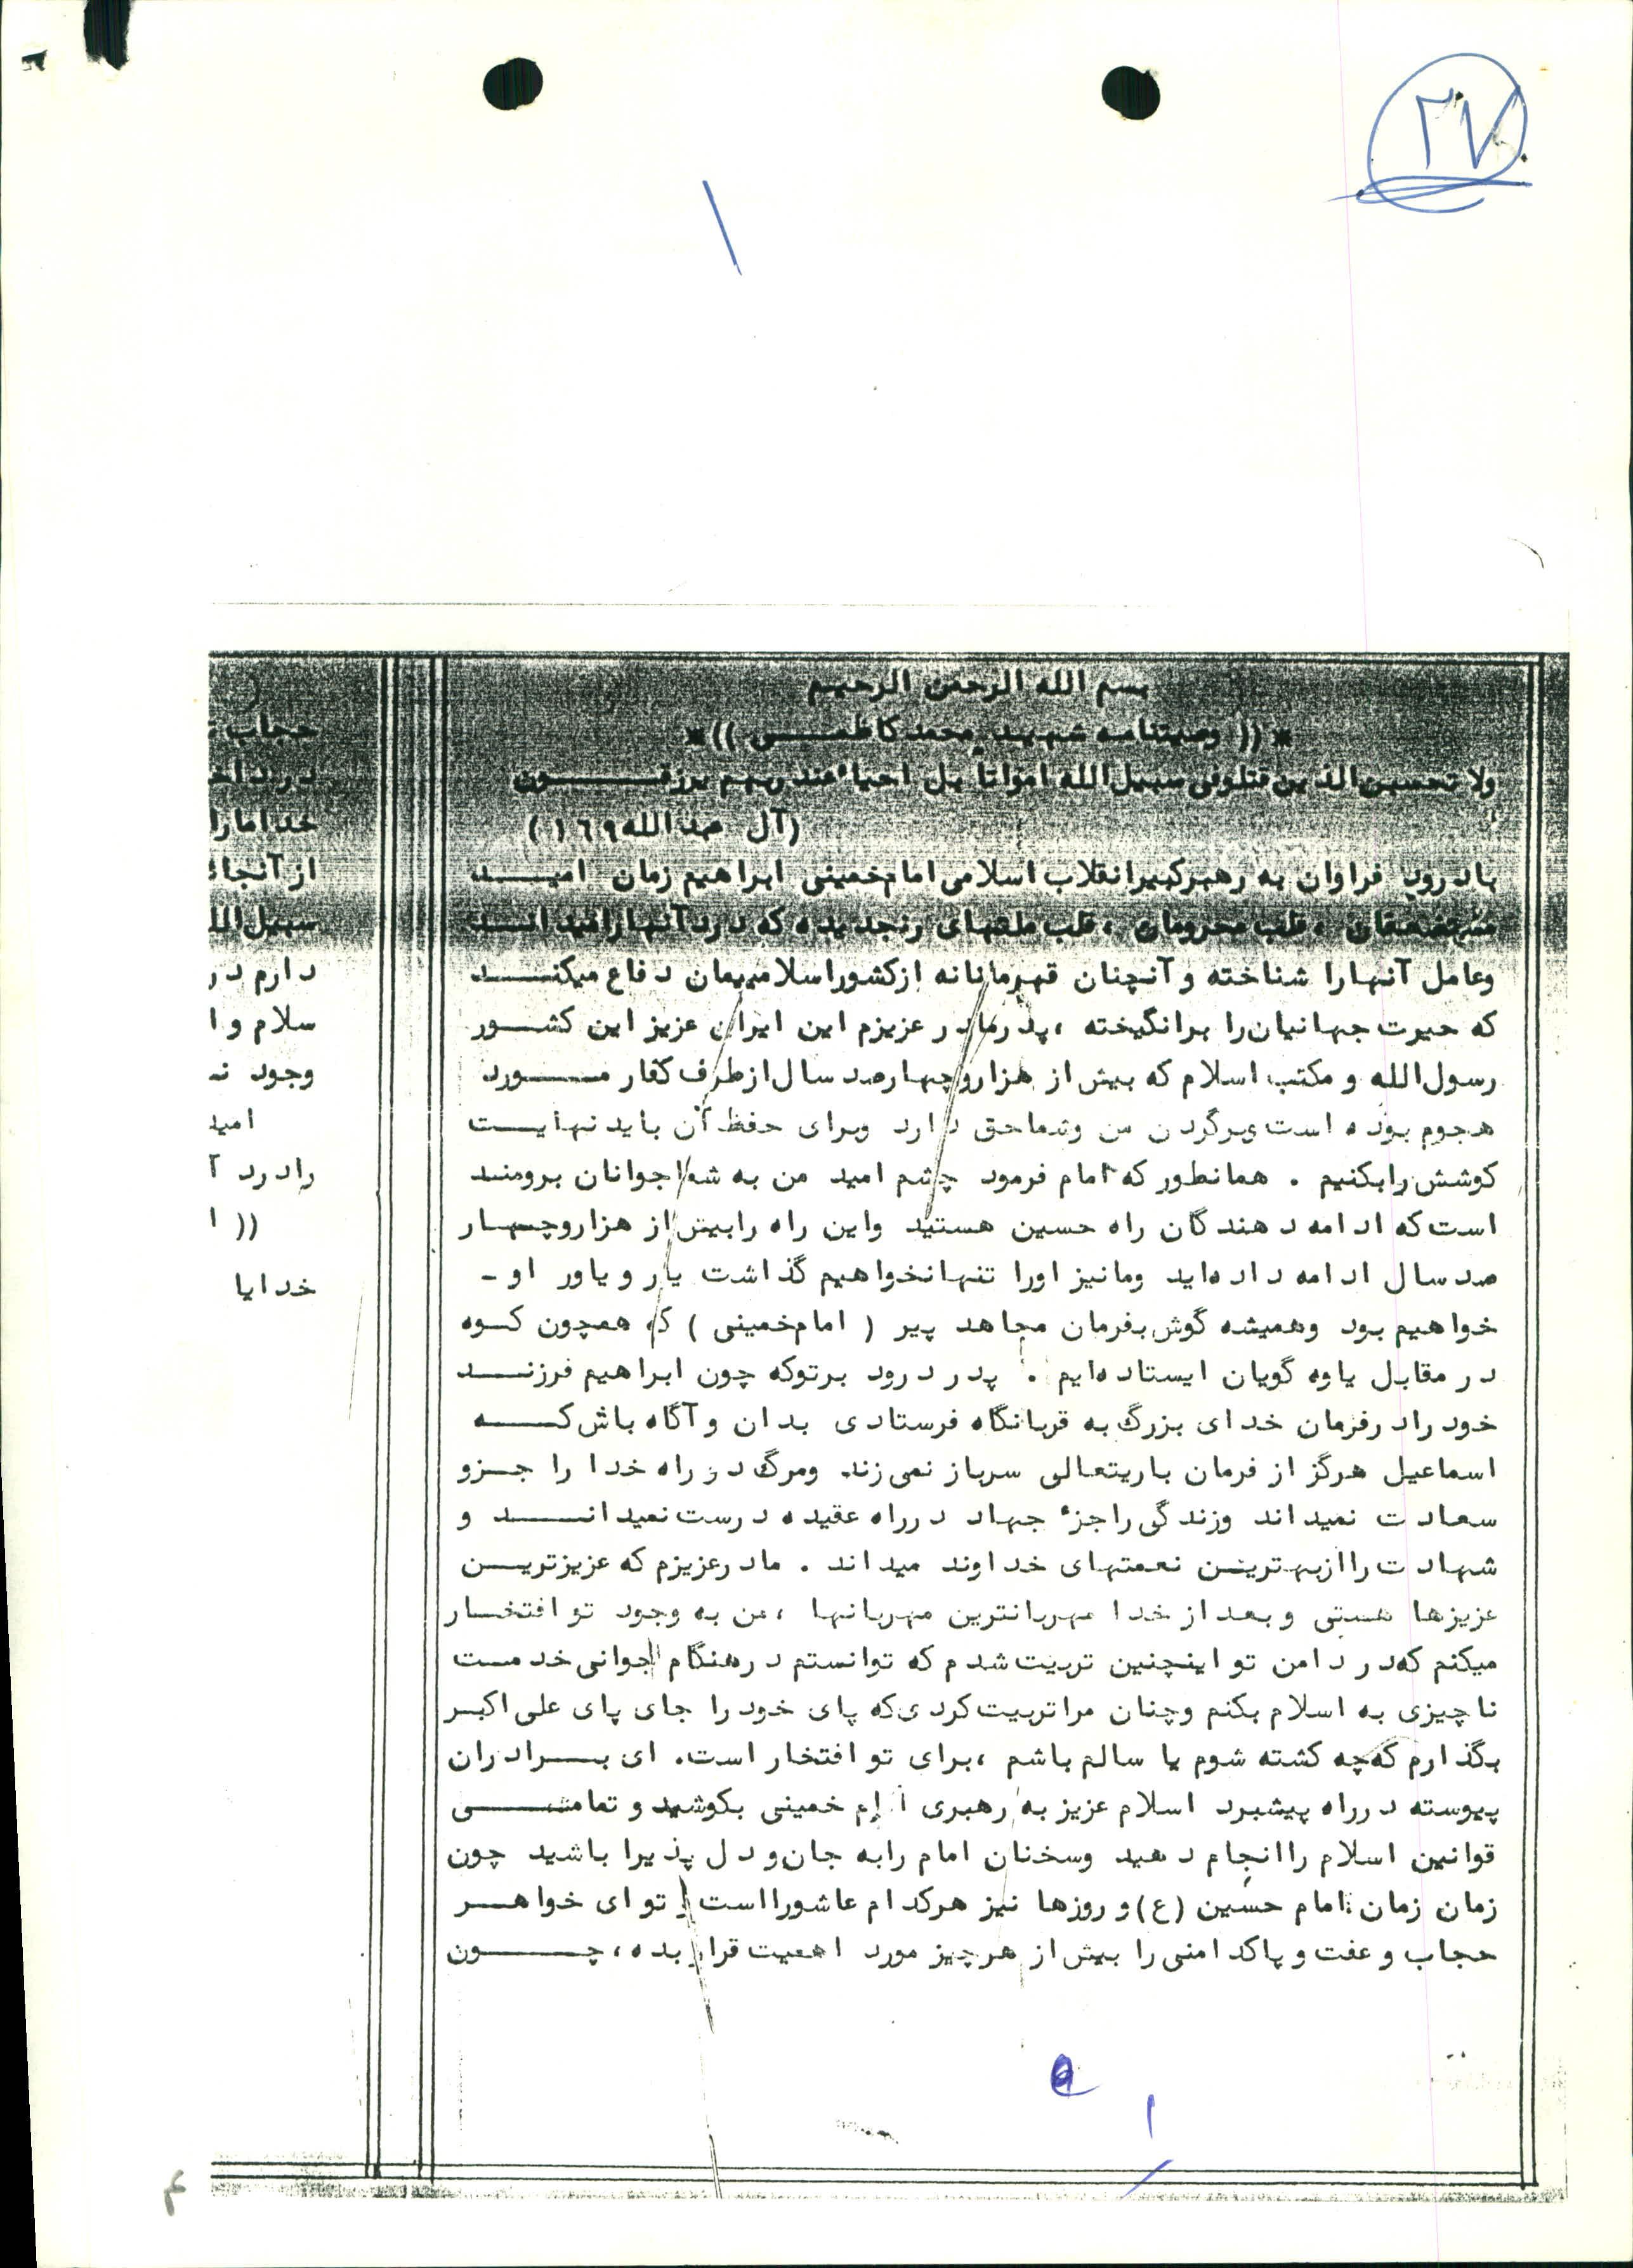 ۲۷
بسم الله الرحمن الرحیم
* (( وصیتنامه شهید محمد کاظمی )) *
ولا تحسبن الذین قتلوفی سبیل الله امواتا بل احیاء عند ربهم یرزقون
(آل عبدالله ۱٦۹)
بادرود فراوان به رهبرکبیرانقلاب اسلامی امام‌خمینی ابراهیم زمان امید
مستضعفان ، قلب محرومان ، قلب ملتهای رنجدیده که درد آنهارا میدانسد
وعامل آنهارا شناخته وآنچنان قهرمانانه ازکشوراسلامیمان دفاع میکند
که حیرت جهانیان‌را برانگیخته ، پدرمادر عزیزم این ایران عزیز این کشور
رسول‌الله ومکتب اسلام که بیش از هزاروچهارصد سال ازطرف کفار مورد
هجوم بوده است برگردن من وشماحق دارد وبرای حفظ آن باید نهایت
کوشش رابکنیم . همانطور که امام فرمود چشم امید من به شما جوانان برومند
است که ادامه دهندگان راه حسین هستید واین راه رابیش از هزاروچهار
صد سال ادامه داده‌اید ومانیز اورا تنهانخواهیم گذاشت یار ویاور او -
خواهیم بود وهمیشه گوش بفرمان مجاهد پیر ( امام‌خمینی ) که همچون کوه
در مقابل یاوه گویان ایستاده‌ایم . پدر درود برتوکه چون ابراهیم فرزند
خود رادرفرمان خدای بزرگ به قربانگاه فرستادی بدان وآگاه باش که
اسماعیل هرگز از فرمان باریتعالی سرباز نمی‌زند ومرگ در راه خدا را جزو
سعادت نمیداند وزندگی راجزء جهاد درراه عقیده درست نمیداند و
شهادت راازبهترین نعمتهای خداوند میداند . مادرعزیزم که عزیزترین
عزیزها هستی وبعد از خدا مهربانترین مهربانها ، من به وجود تو افتخار
میکنم که‌در دامن تو اینچنین تربیت شدم که توانستم درهنگام جوانی خدمت
ناچیزی به اسلام بکنم وچنان مراتربیت کردی‌که پای خود را جای پای علی اکبر
بگذارم که‌چه کشته شوم یا سالم باشم ، برای تو افتخار است. ای برادران
پیوسته درراه پیشبرد اسلام عزیز به رهبری امام خمینی بکوشید و تمامی
قوانین اسلام راانجام دهید وسخنان امام رابه جان‌و دل پذیرا باشید چون
زمان زمان امام حسین (ع) و روزها نیز هرکدام عاشورااست تو ای خواهر
حجاب و عفت و پاکدامنی را بیش از هرچیز مورد اهمیت قرار بده ، چون
حجاب
خدامارا
از آنجا
دارم در
سلام و ا
وجود
امید
رادرد
(( ا
خدایا